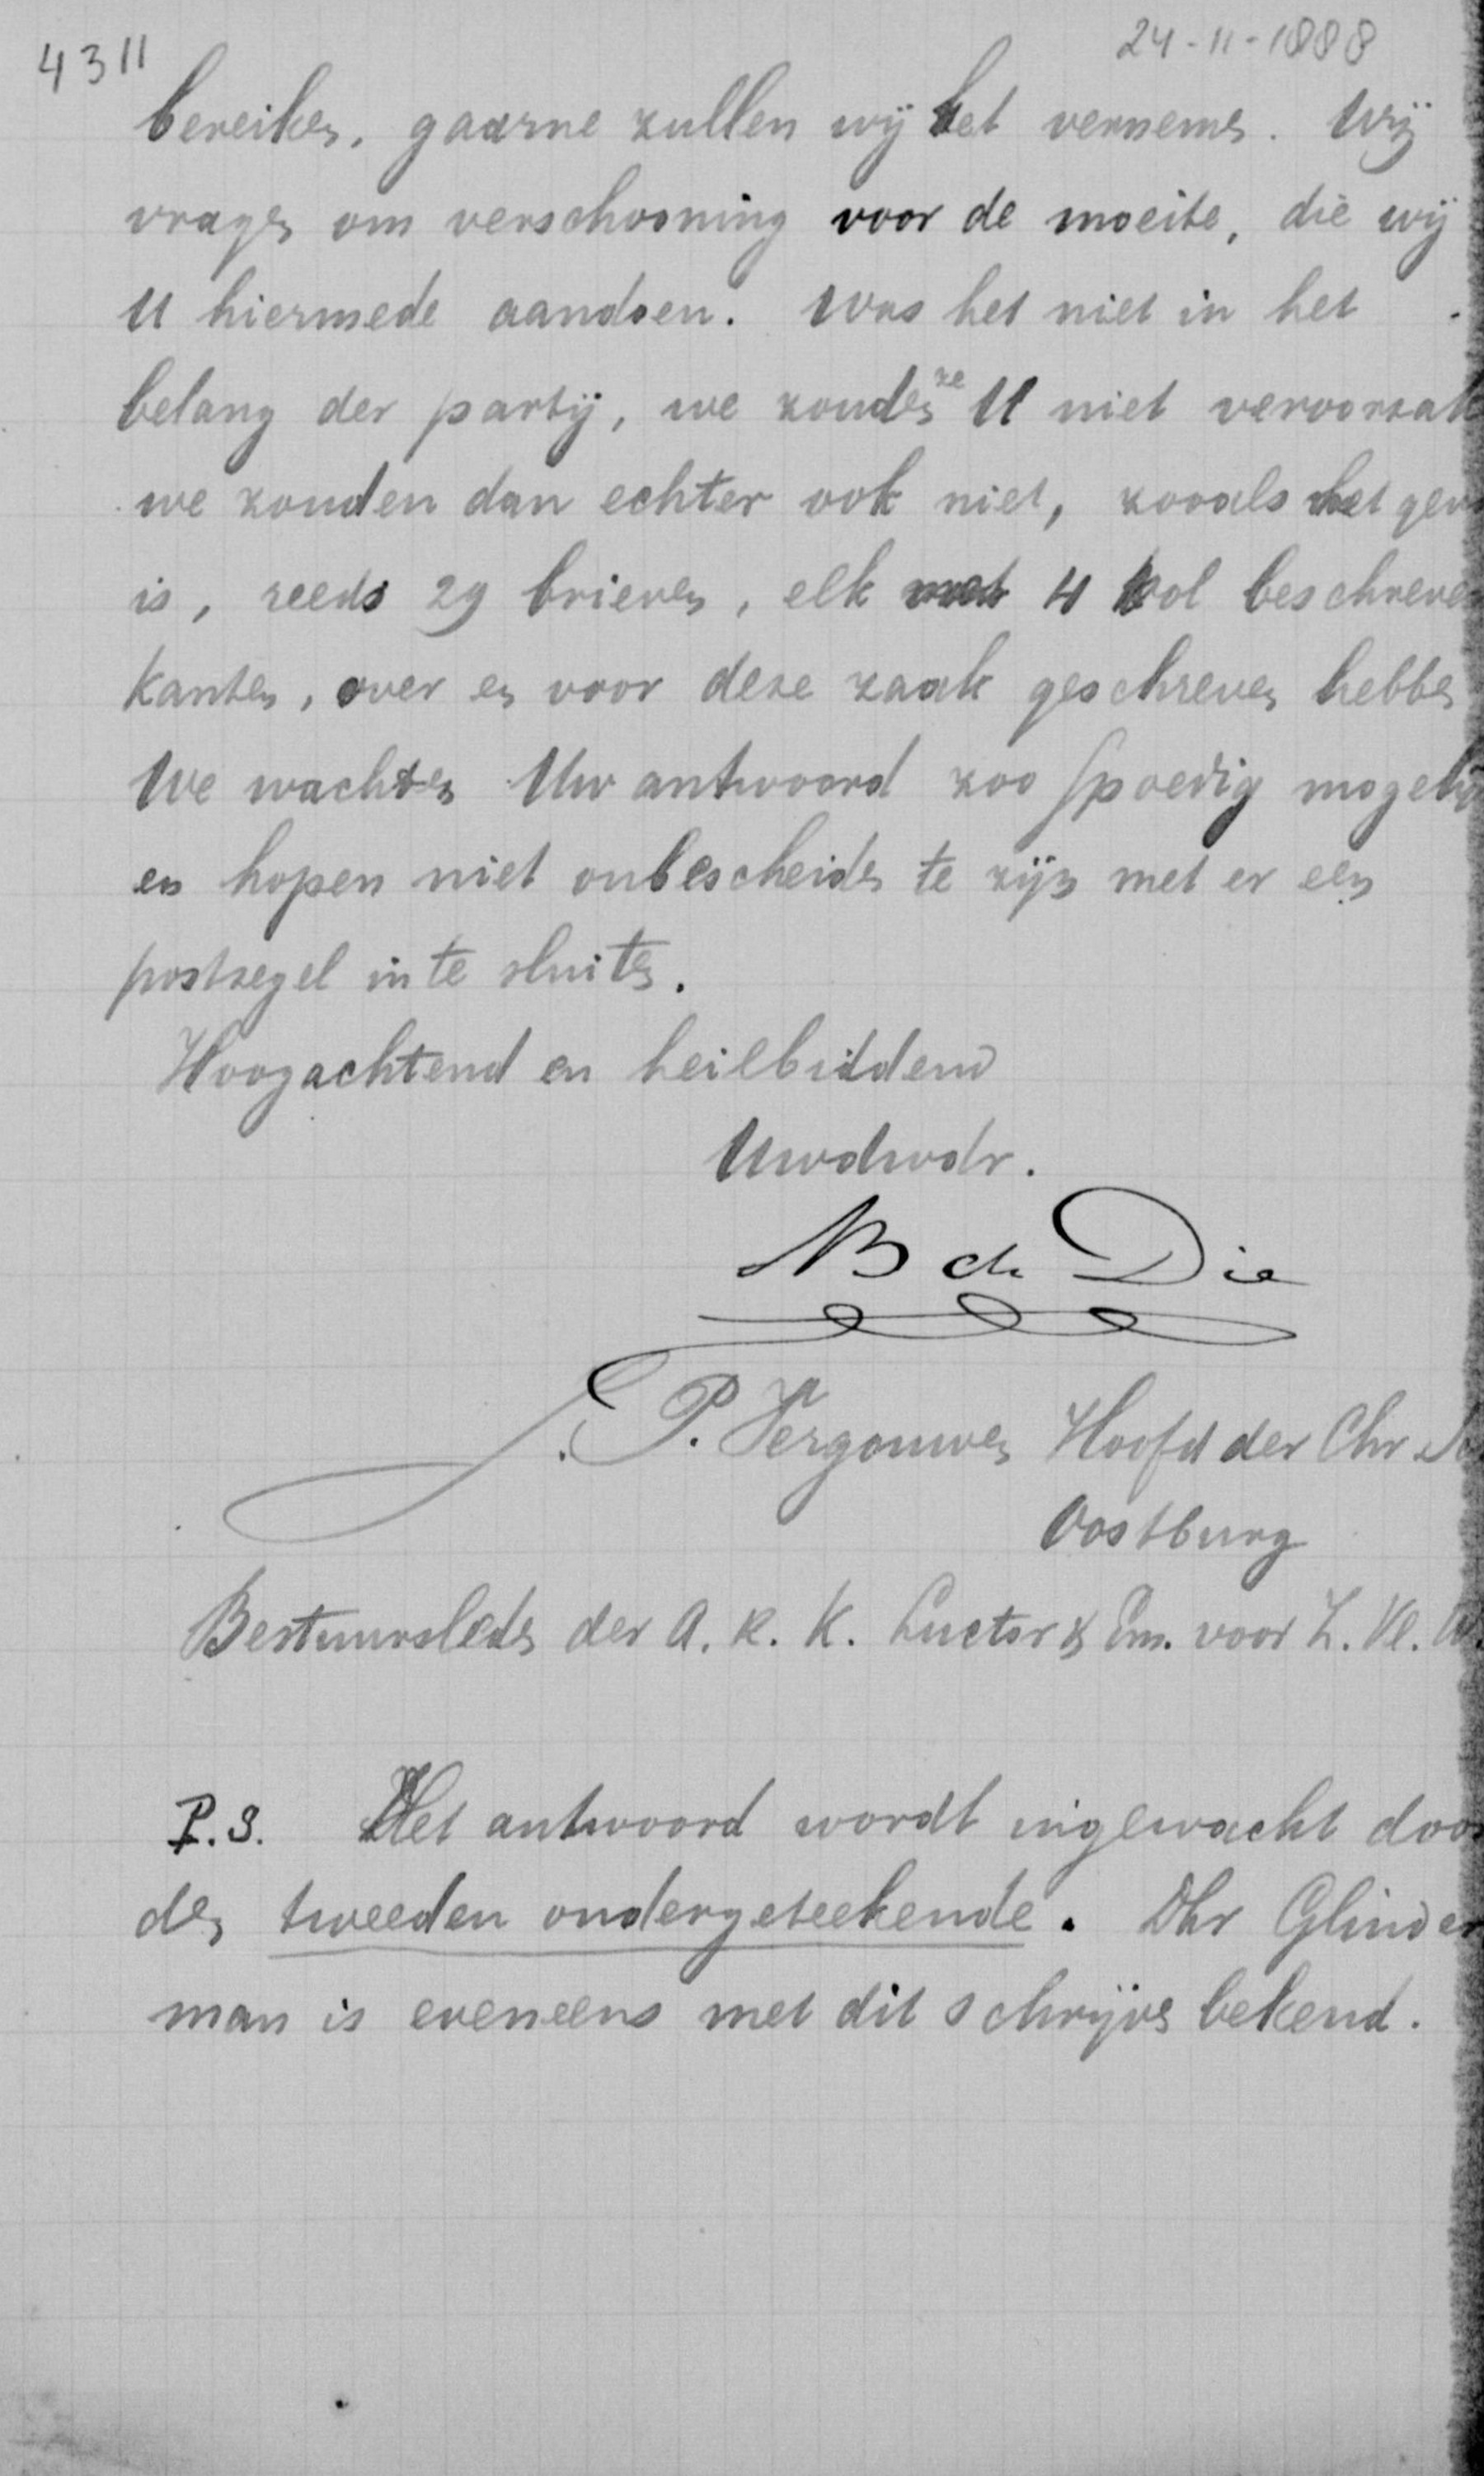 4311
24-11-1888
bereiken, gaarne zullen wij het vernemen. Wij
vragen om verschooning voor de moeite, die wij
U hiermede aandoen. Was het niet in het
belang der partij, we zouden ze U niet veroorzak
we zouden dan echter ook niet, zooals het gev
is, reeds 29 brieven, elk met 4 vol beschreven
kanten, over en voor deze zaak geschreven hebben
We wachten Uw antwoord zoo spoedig mogelijk
en hopen niet onbescheiden te zijn met er een
postzegel in te sluiten.
Hoogachtend en heilbiddend
Uwdwdr.
AB de Die
P. Vergouwen Hoofd der Chr. S
Oostburg
Bestuursleden der A. R. K. Luctor & Em. voor Z. Vl. W.
P.S. Het antwoord wordt ingewacht door
den tweeden ondergeteekende. Dhr Glinder
man is eveneens met dit schrijven bekend.